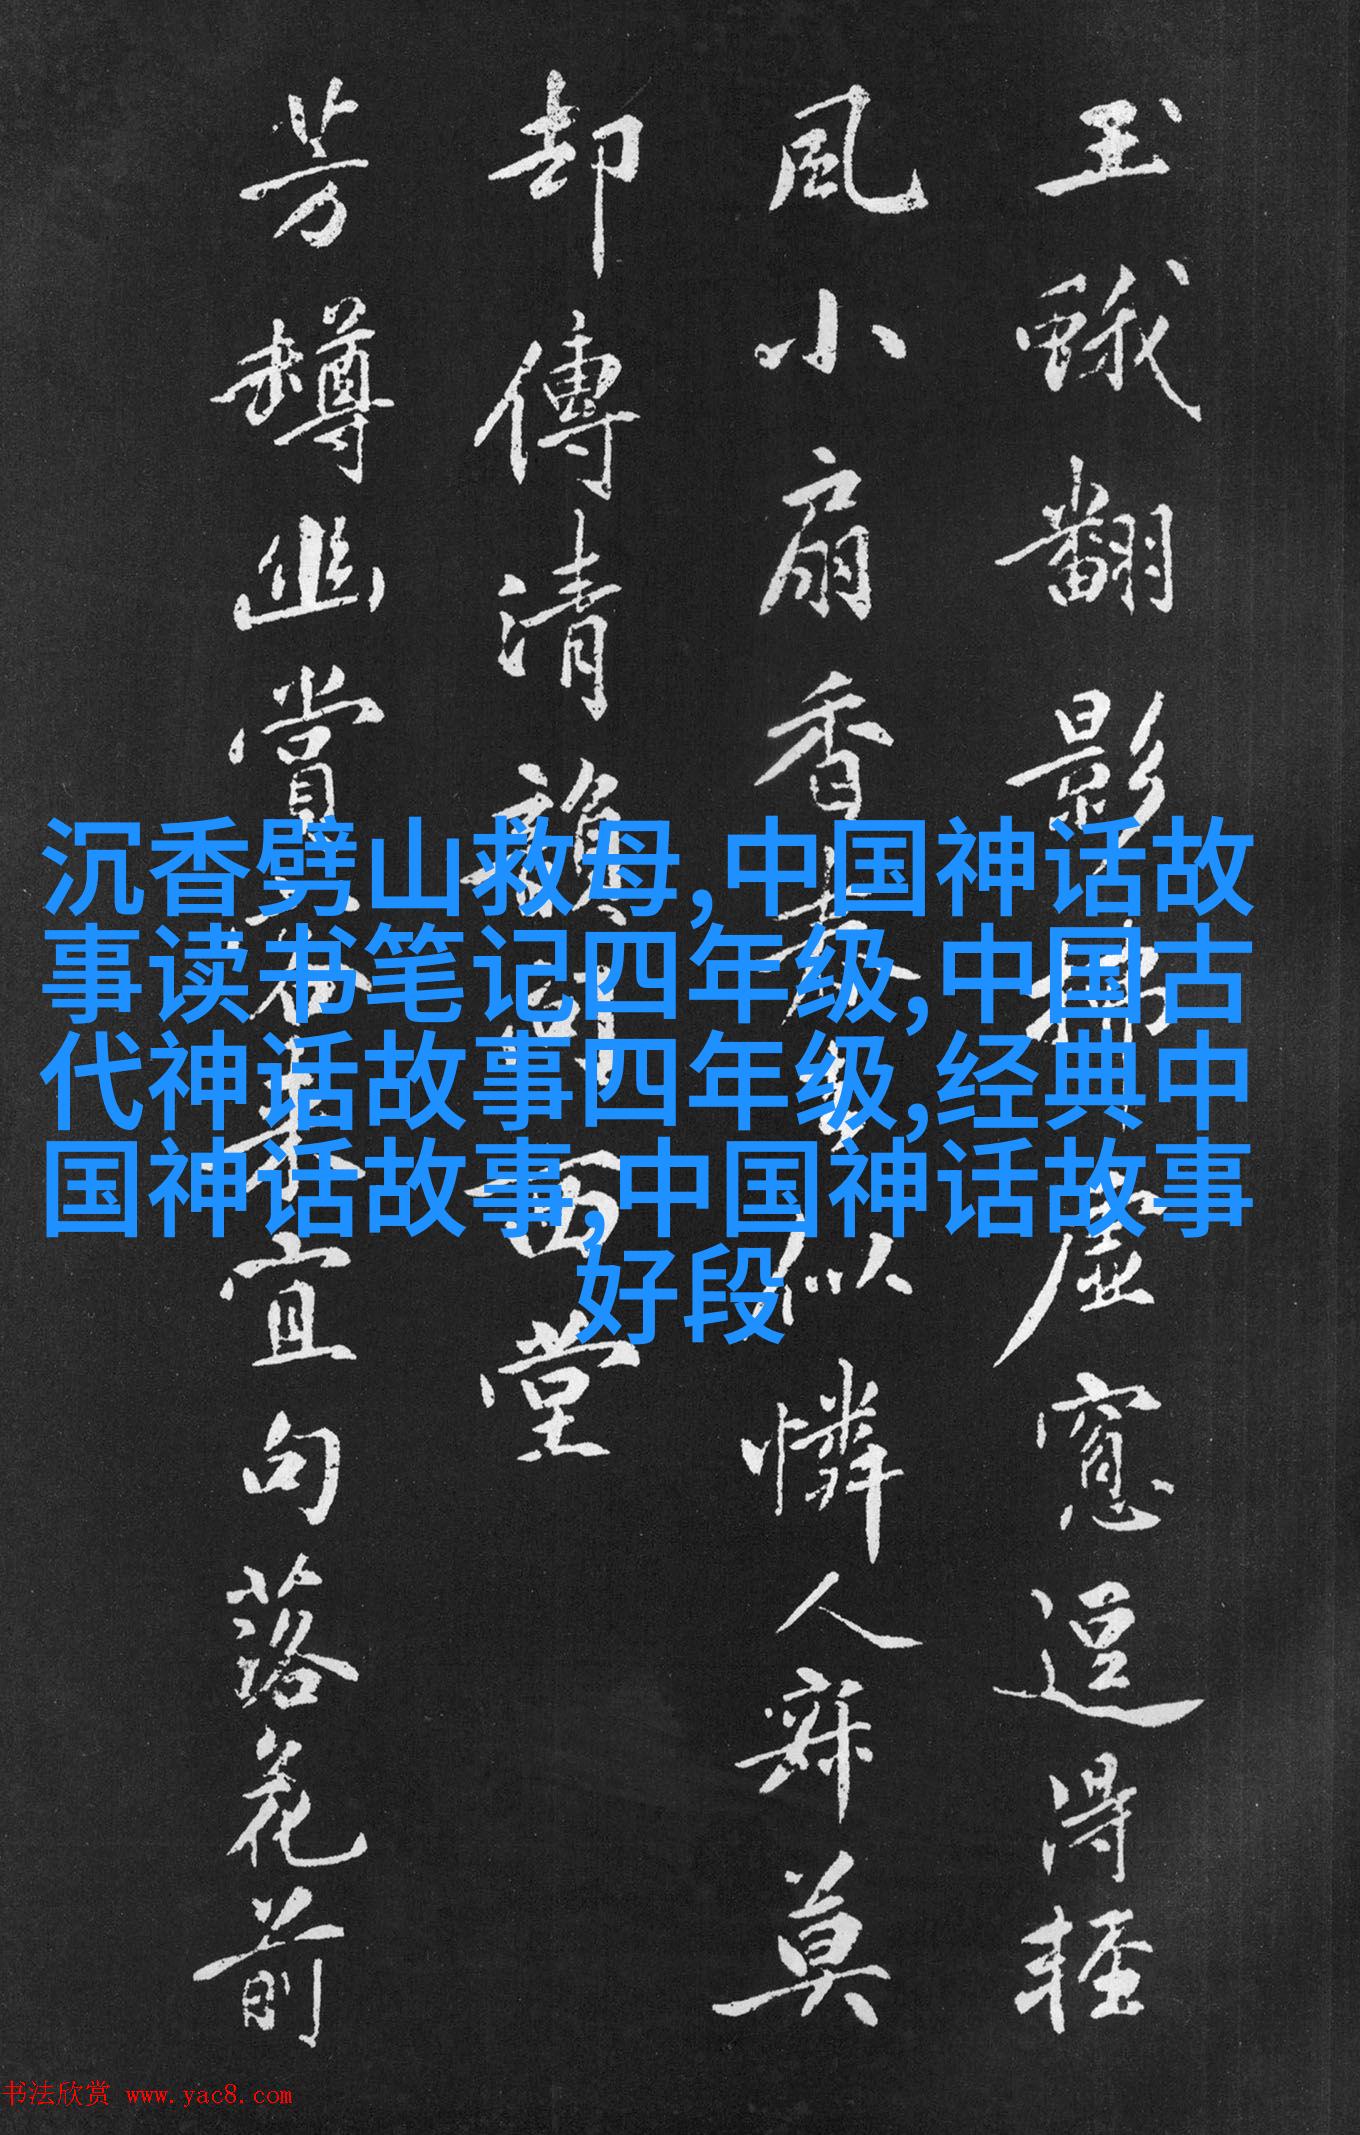 玉蛾翻影拂虛窓逗得輕
風小扇香似憐人寂莫
却傳清韻到西堂
芳樽幽賞宜句落花前
沉香劈山救母,中国神话故
事读书笔记四年级,中国古
代神话故事四年级,经典中
国神话故事,中国神话故事
好段
书法欣赏 www.yac8.com